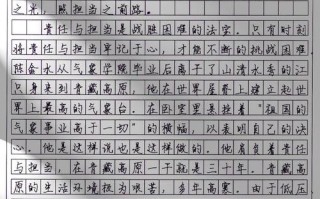 之光，照担当之前路。
责任与担当是战胜困难的法宝。只有时刻
将责任与担当牢记于心，才能不断的挑战困难
陈金水从气象学院毕业后离了山清水秀的江
只身来到青藏高原，他在世界屋脊上建立起世
界上最高的气象台。在卧室里悬挂着"祖国的
气象事业高于一切"的横幅，以表明自己的决
心。他是这样说也是这样做的。他肩负着责任
与担当，在青藏高原一干就是三十年。青藏高
原的生活环境极为艰苦，多年高寒。由于低压